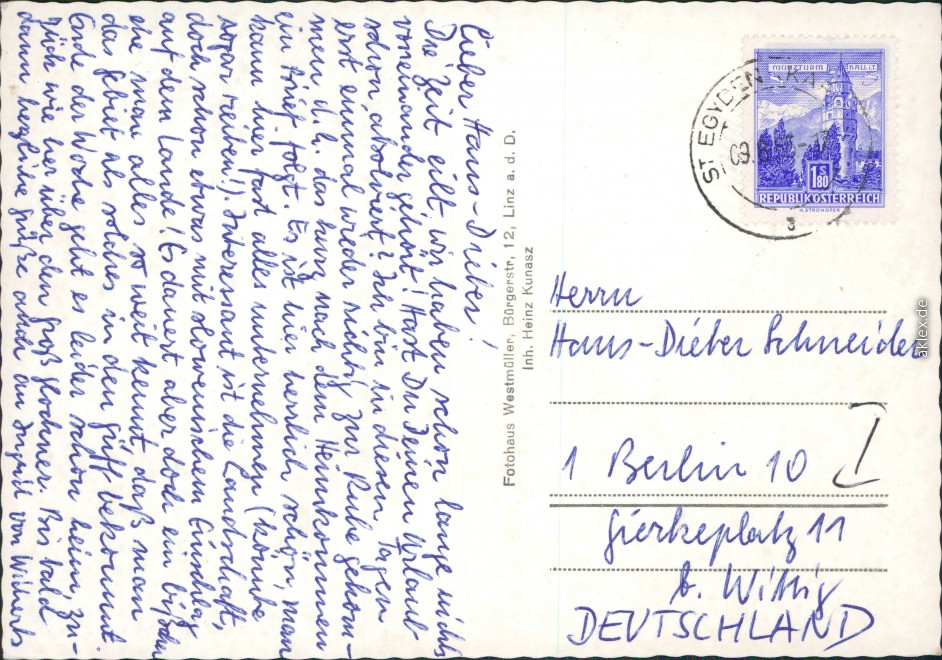 Lieber Hans-Dieter!
Die Zeit eilt, wir haben schon lange nichts
voneinander gehört! Hast Du Deinen Urlaub
schon absolviert? Ich bin in diesen Tagen
erst einmal wieder richtig zur Ruhe gekom-
men d.h. das kurz nach dem Heimkommen
ein Brief folgt. Es ist hier herrlich schön, man
kann hier fast alles unternehmen (könnte
sogar reiben!). Interessant ist die Landschaft,
doch schon etwas mit slowenischem Einschlag
auf dem Lande! Es dauert aber doch ein bißchen
ehe man alles so weit kennt, daß man
das Gebiet als solches in den Griff bekommt
Ende der Woche geht es leider schon heim, zu-
rück wie her über den Großglockner. Bis bald
dann herzliche Grüße auch an von Wilherts
Fotohaus Westmüller, Bürgerstr, 12, Linz a. d. D.
Inh. Heinz Kunasz
MÜNZTURM HALL i.T.
1 S 80
REPUBLIK ÖSTERREICH
H. STROHOFER
ST EGYDEN
a
Herrn
Hans-Dieter Schneider
1 Berlin 10
Gierkeplatz 11
b. Wittig
DEUTSCHLAND
aklex.de